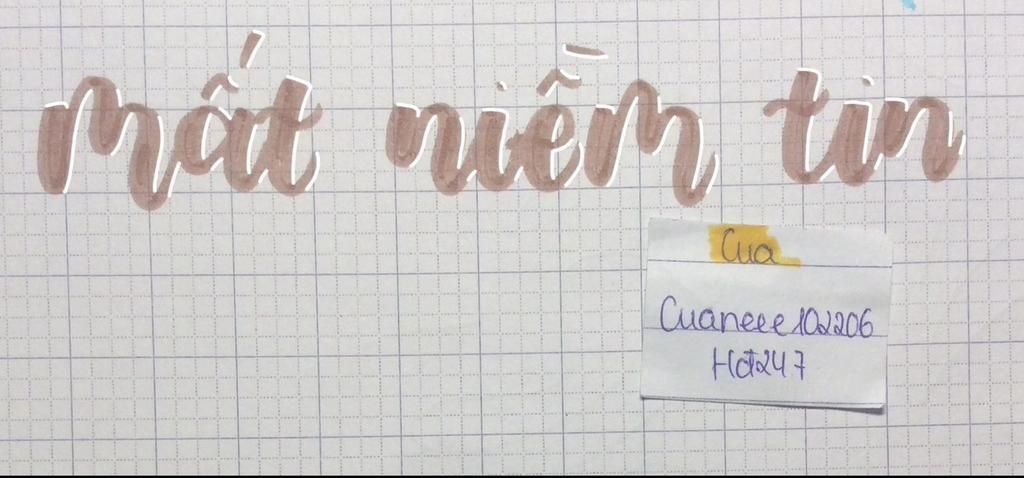 mất niềm tin
Cua
Cuaneee102206
Hd247